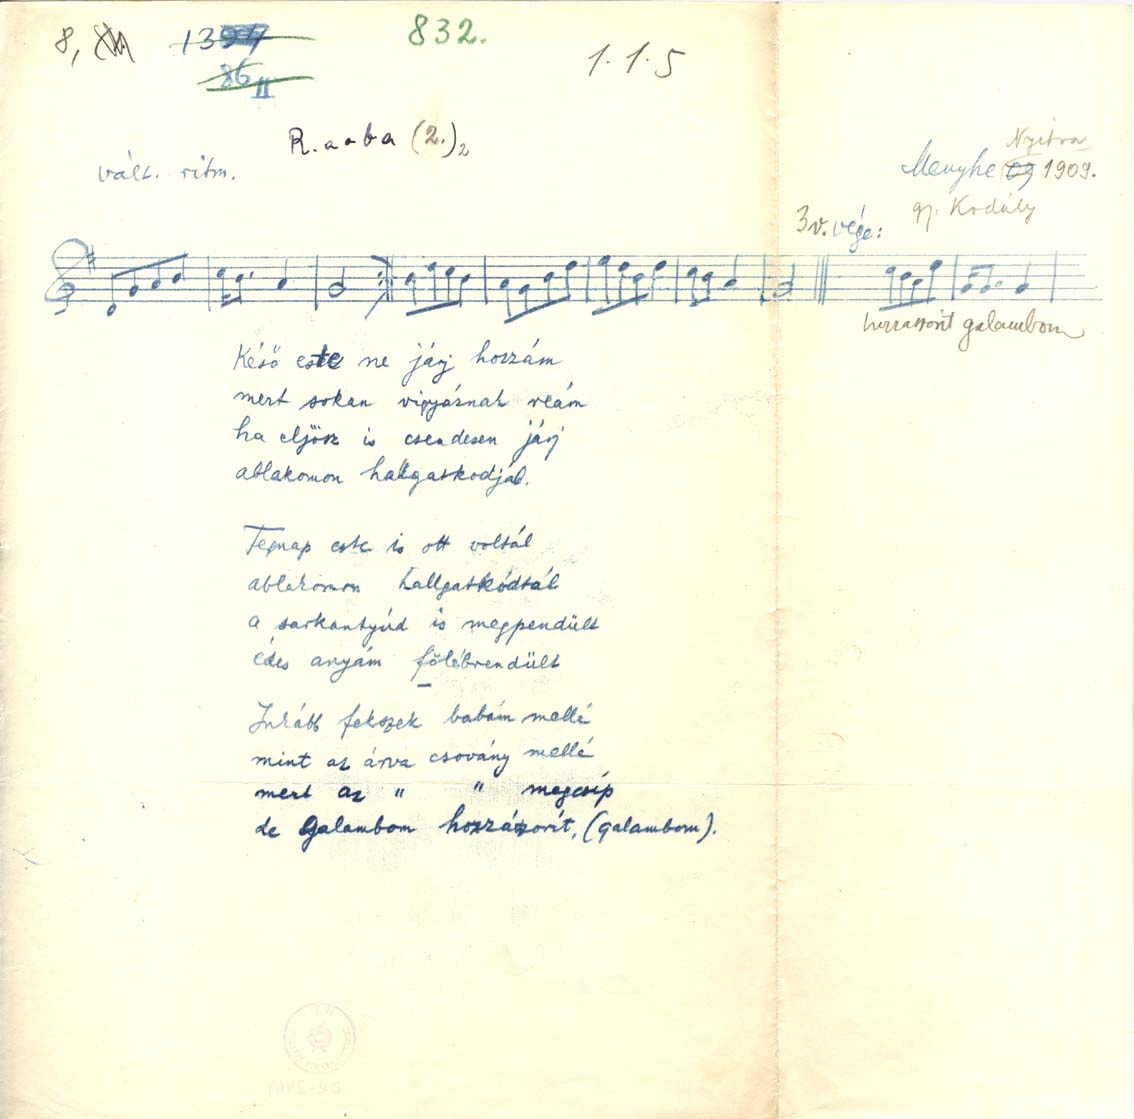 8,
1394
832.
1.1.5
86 II
R. aaba (2.)2
Nyitra
vált. ritm.
Menyhe 09 1909.
gy. Kodály
3v. vége:
hozzászorít galambom
Késő este ne járj hozzám
mert sokan vigyáznak reám
ha eljösz is csendesen járj
ablakomon hallgatkodjál.
Tegnap este is ott voltál
ablakomon hallgatkódtál
a sarkantyúd is megpendült
édes anyám fölébrendült
Inkább fekszek babám mellé
mint az árva csovány mellé
mert az " " megcsíp
de galambom hozzászorít, (galambom).